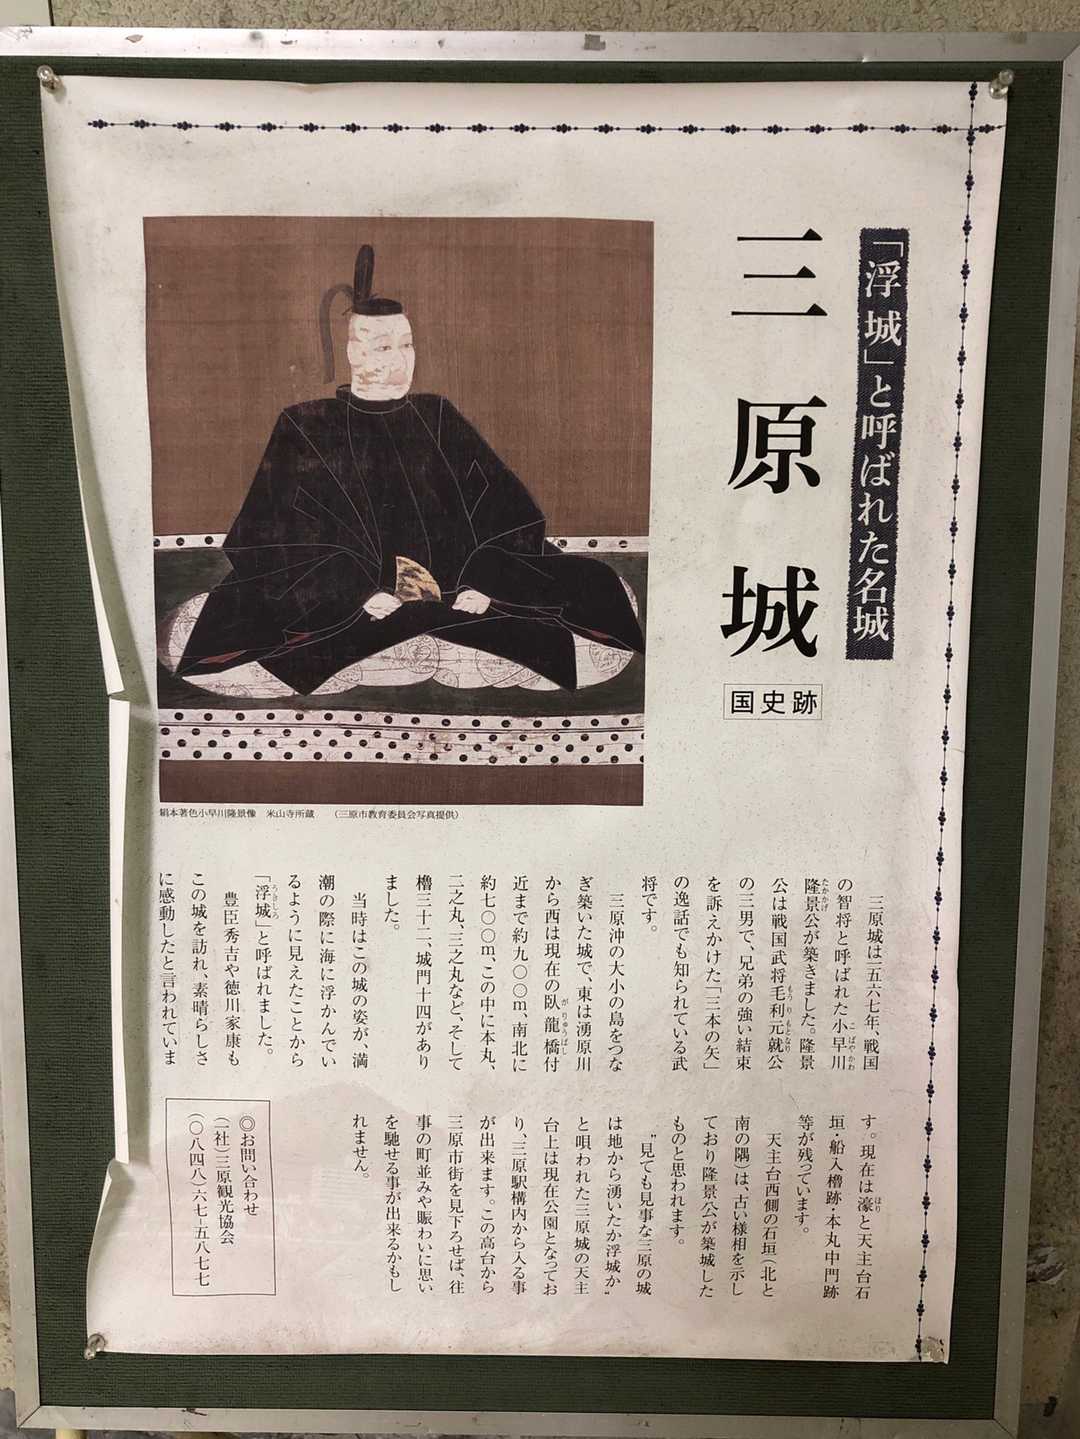 「浮城」と呼ばれた名城
三原城
国史跡
絹本著色小早川隆景像　米山寺所蔵　（三原市教育委員会写真提供）
三原城は一五六七年、戦国
の智将と呼ばれた小早川
隆景公が築きました。隆景
公は戦国武将毛利元就公
の三男で、兄弟の強い結束
を訴えかけた「三本の矢」
の逸話でも知られている武
将です。
三原沖の大小の島をつな
ぎ築いた城で、東は湧原川
から西は現在の臥龍橋付
近まで約九〇〇m、南北に
約七〇〇m、この中に本丸、
二之丸、三之丸など、そして
櫓三十二、城門十四があり
ました。
当時はこの城の姿が、満
潮の際に海に浮かんでい
るように見えたことから
「浮城」と呼ばれました。
豊臣秀吉や徳川家康も
この城を訪れ、素晴らしさ
に感動したと言われていま
す。現在は濠と天主台石
垣・船入櫓跡・本丸中門跡
等が残っています。
天主台西側の石垣（北と
南の隅）は、古い様相を示し
ており隆景公が築城した
ものと思われます。
"見ても見事な三原の城
は地から湧いたか浮城か"
と唄われた三原城の天主
台上は現在公園となってお
り、三原駅構内から入る事
が出来ます。この高台から
三原市街を見下ろせば、往
事の町並みや賑わいに思い
を馳せる事が出来るかもし
れません。
◎お問い合わせ
（一社）三原観光協会
（〇八四八）六七-五八七七